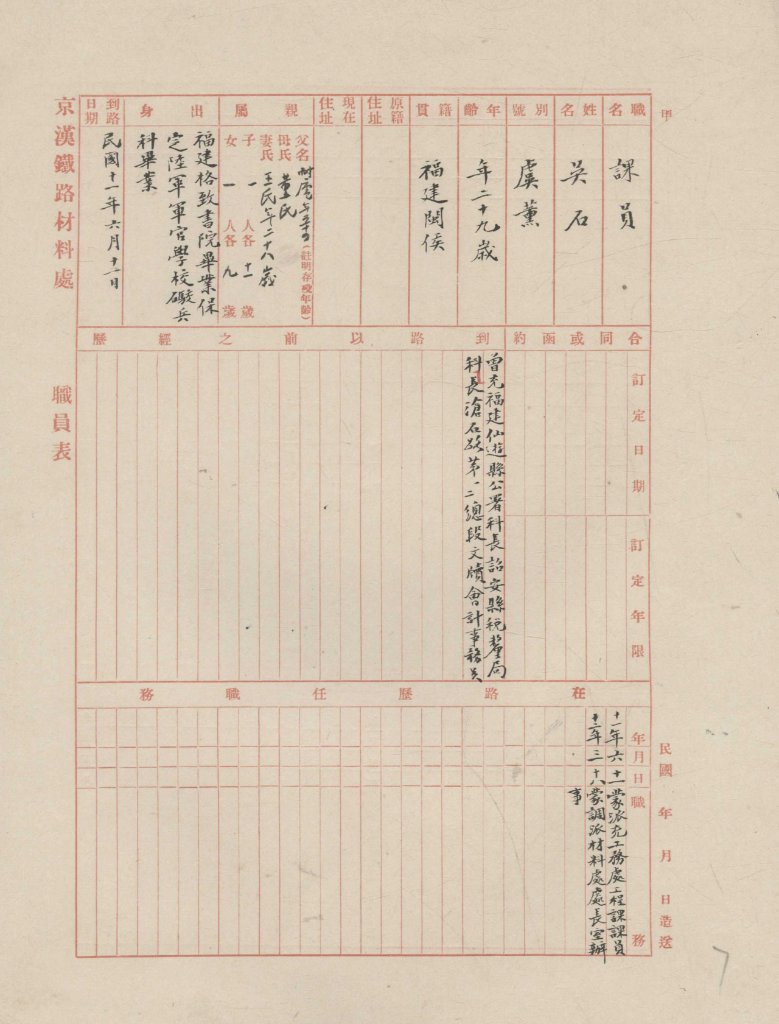 甲
職名
課員
姓名
吳石
別號
虞薰
年齡
年二十九歲
籍貫
福建閩侯
原籍住址
現在住址
親屬
父名
(註明存歿年齡)
母氏 董氏
妻氏 王氏年二十八歲
子 一 人各 十一 歲
女 一 人各 九 歲
出身
福建格致書院畢業保
定陸軍軍官學校礮兵
科畢業
到路日期
民國十一年六月十一日
京漢鐵路材料處 職員表
合同或函約
訂定日期
訂定年限
到路以前之經歷
曾充福建仙遊縣公署科長詔安縣稅釐局
科長滄石路第一二總段文牘會計事務員
在路歷任職務
年月日職務
十一年六十一蒙派充工務處工程課課員
十二年三十八蒙調派材料處處長室辦
事
民國 年 月 日造送
7